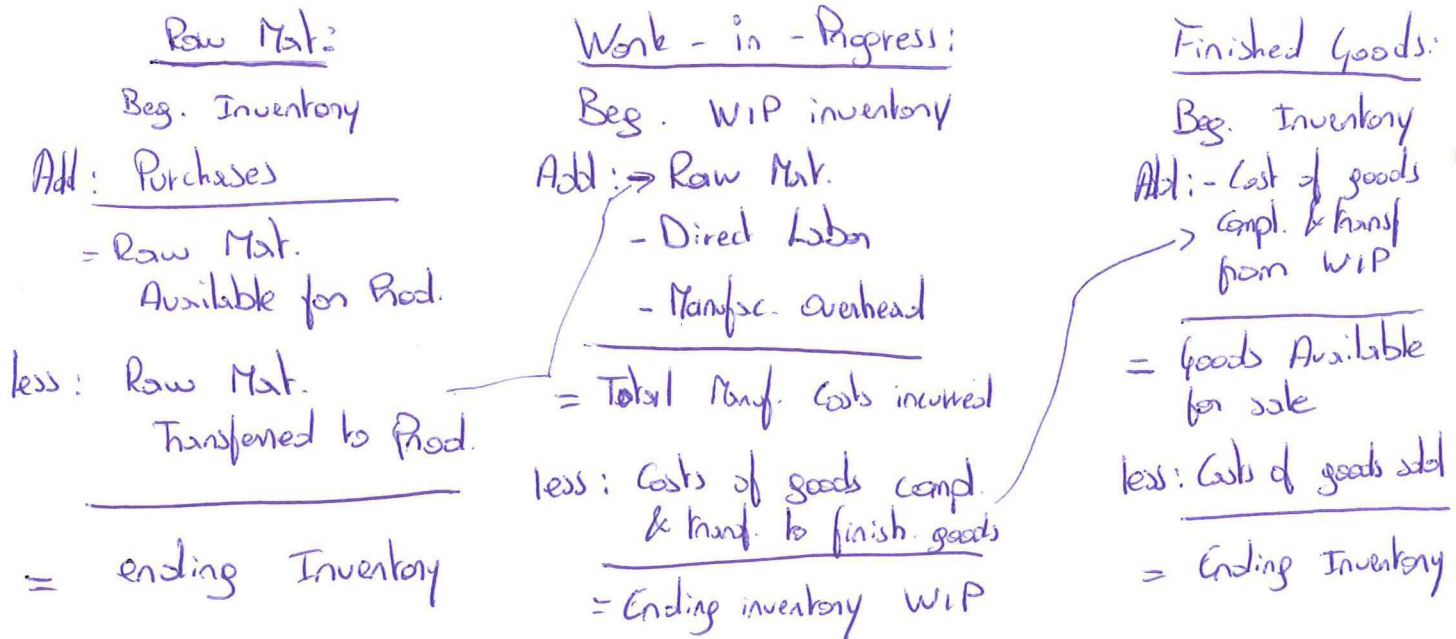 Raw Mat:
Beg. Inventory
Add: Purchases
= Raw Mat.
Available for Prod.
less: Raw Mat.
Transferred to Prod.
= ending Inventory
Work - in - Progress:
Beg. WIP inventory
Add: → Raw Mat.
- Direct Labor
- Manufac. overhead
= Total Manuf. Costs incurred
less: Costs of goods compl.
& transf. to finish. goods
= Ending inventory WIP
Finished Goods:
Beg. Inventory
Add: - Cost of goods
compl. & transf
from WIP
= Goods Available
for sale
less: Costs of goods sold
= Ending Inventory